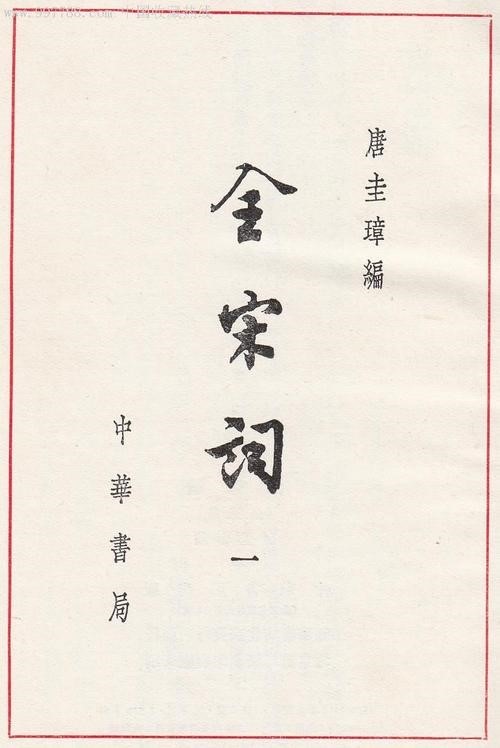 www.997788.com 中国收藏热线
唐圭璋編
全宋詞
一
中華書局